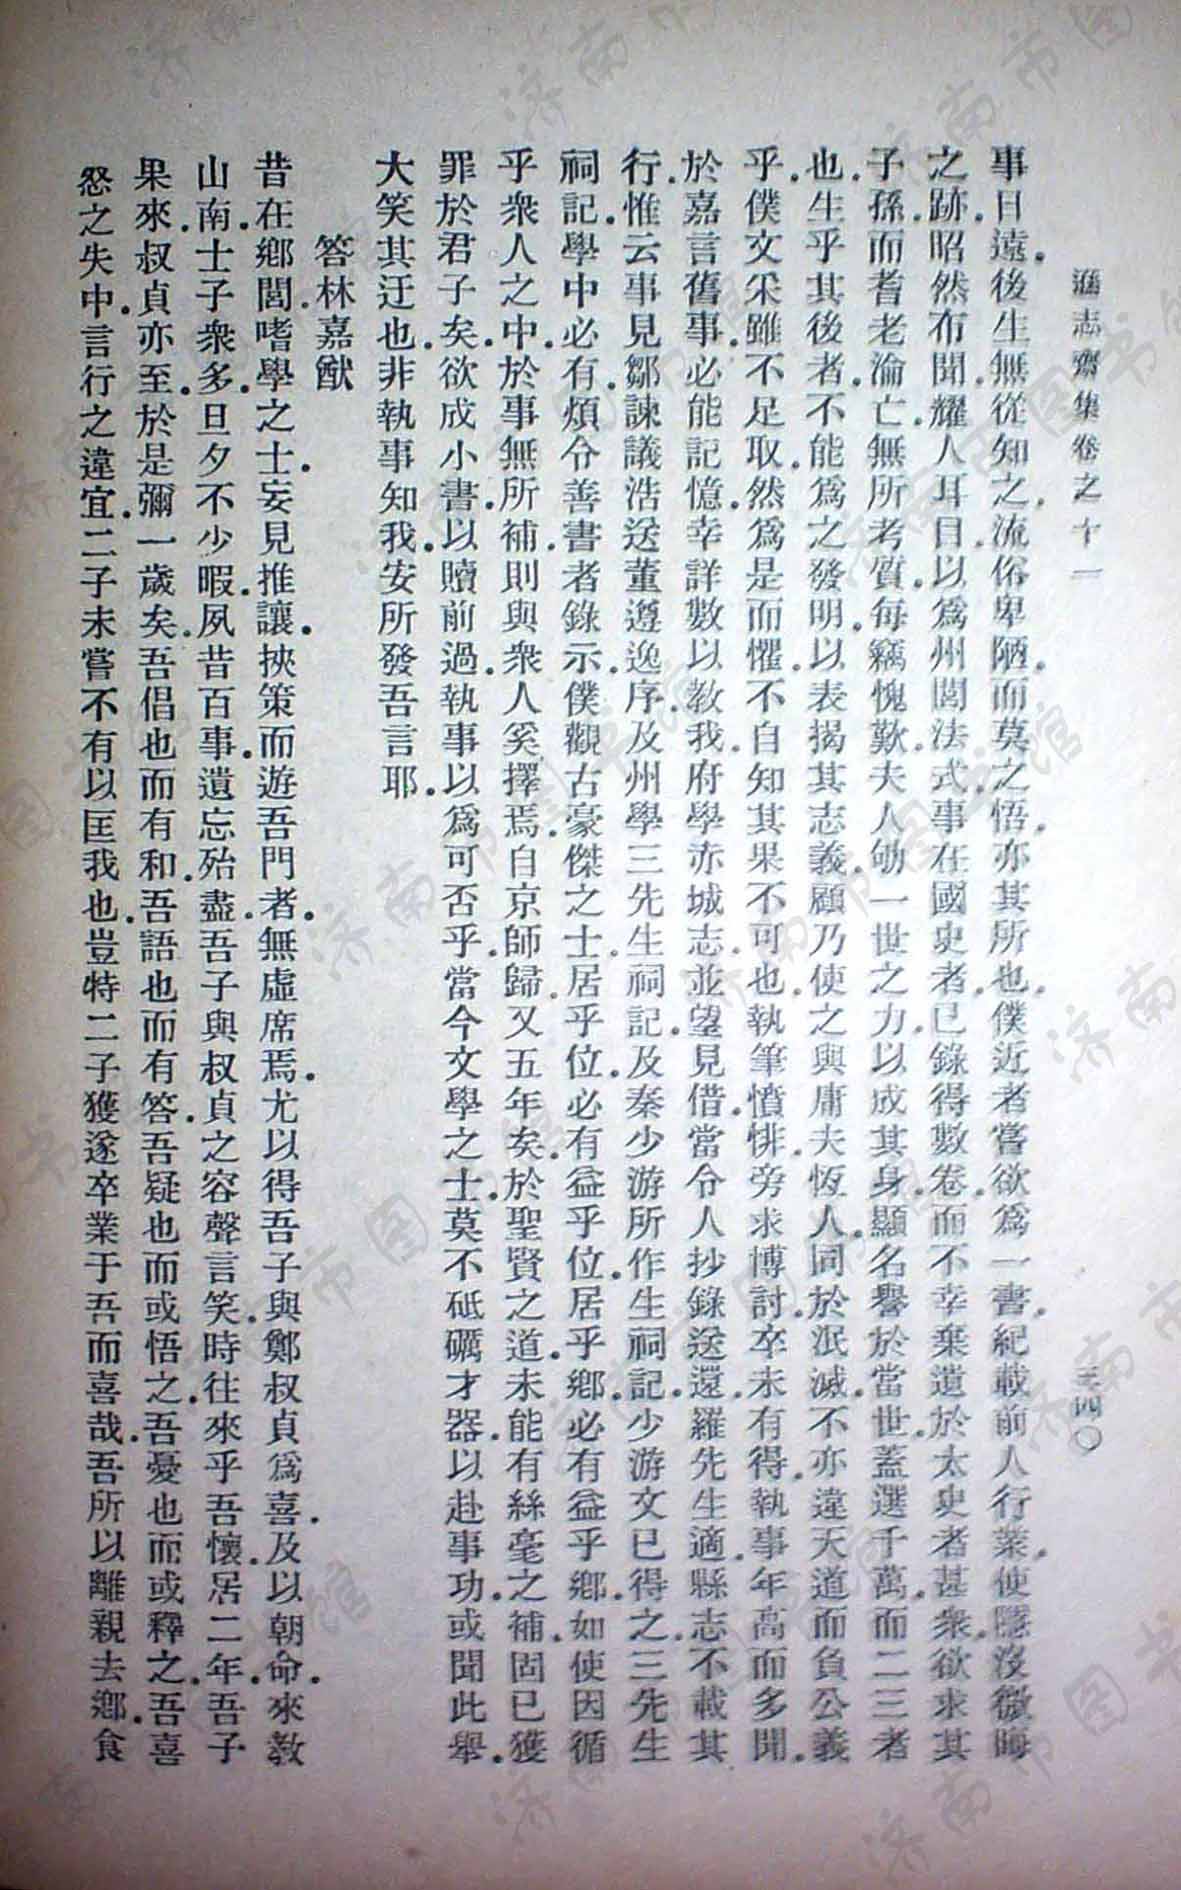 遜志齋集卷之十一
三四〇
事日遠。後生無從知之。流俗卑陋。而莫之悟。亦其所也。僕近者嘗欲為一書。紀載前人行業。使隱沒微晦
之跡。昭然布聞。耀人耳目。以為州閭法式。事在國史者。已錄得數卷。而不幸棄遺於太史者甚衆。欲求其
子孫。而耆老淪亡。無所考質。每竊愧歎。夫人劬一世之力。以成其身。顯名譽於當世。蓋選千萬而二三者
也。生乎其後者。不能為之發明。以表揭其志義。顧乃使之與庸夫恆人。同於泯滅。不亦違天道而負公義
乎。僕文采雖不足取。然為是而懼。不自知其果不可也。執筆憤悱。旁求博討。卒未有得。執事年高而多聞。
於嘉言舊事。必能記憶。幸詳數以教我。府學赤城志。並望見借。當令人抄錄送還。羅先生適。縣志不載其
行。惟云事見鄒諫議浩送董遵逸序。及州學三先生祠記。及秦少游所作生祠記。少游文已得之。三先生
祠記。學中必有。煩令善書者錄示。僕觀古豪傑之士。居乎位。必有益乎位。居乎鄉。必有益乎鄉。如使因循
乎衆人之中。於事無所補。則與衆人奚擇焉。自京師歸。又五年矣。於聖賢之道。未能有絲毫之補。固已獲
罪於君子矣。欲成小書。以贖前過。執事以為可否乎。當今文學之士。莫不砥礪才器。以赴事功。或聞此舉。
大笑其迂也。非執事知我。安所發吾言耶。
答林嘉猷
昔在鄉閭。嗜學之士。妄見推讓。挾策而遊吾門者。無虛席焉。尤以得吾子與鄭叔貞為喜。及以朝命。來教
山南。士子衆多。旦夕不少暇。夙昔百事。遺忘殆盡。吾子與叔貞之容聲言笑。時往來乎吾懷。居二年。吾子
果來。叔貞亦至。於是彌一歲矣。吾倡也而有和。吾語也而有答。吾疑也而或悟之。吾憂也而或釋之。吾喜
怒之失中。言行之違宜。二子未嘗不有以匡我也。豈特二子獲遂卒業于吾而喜哉。吾所以離親去鄉。食